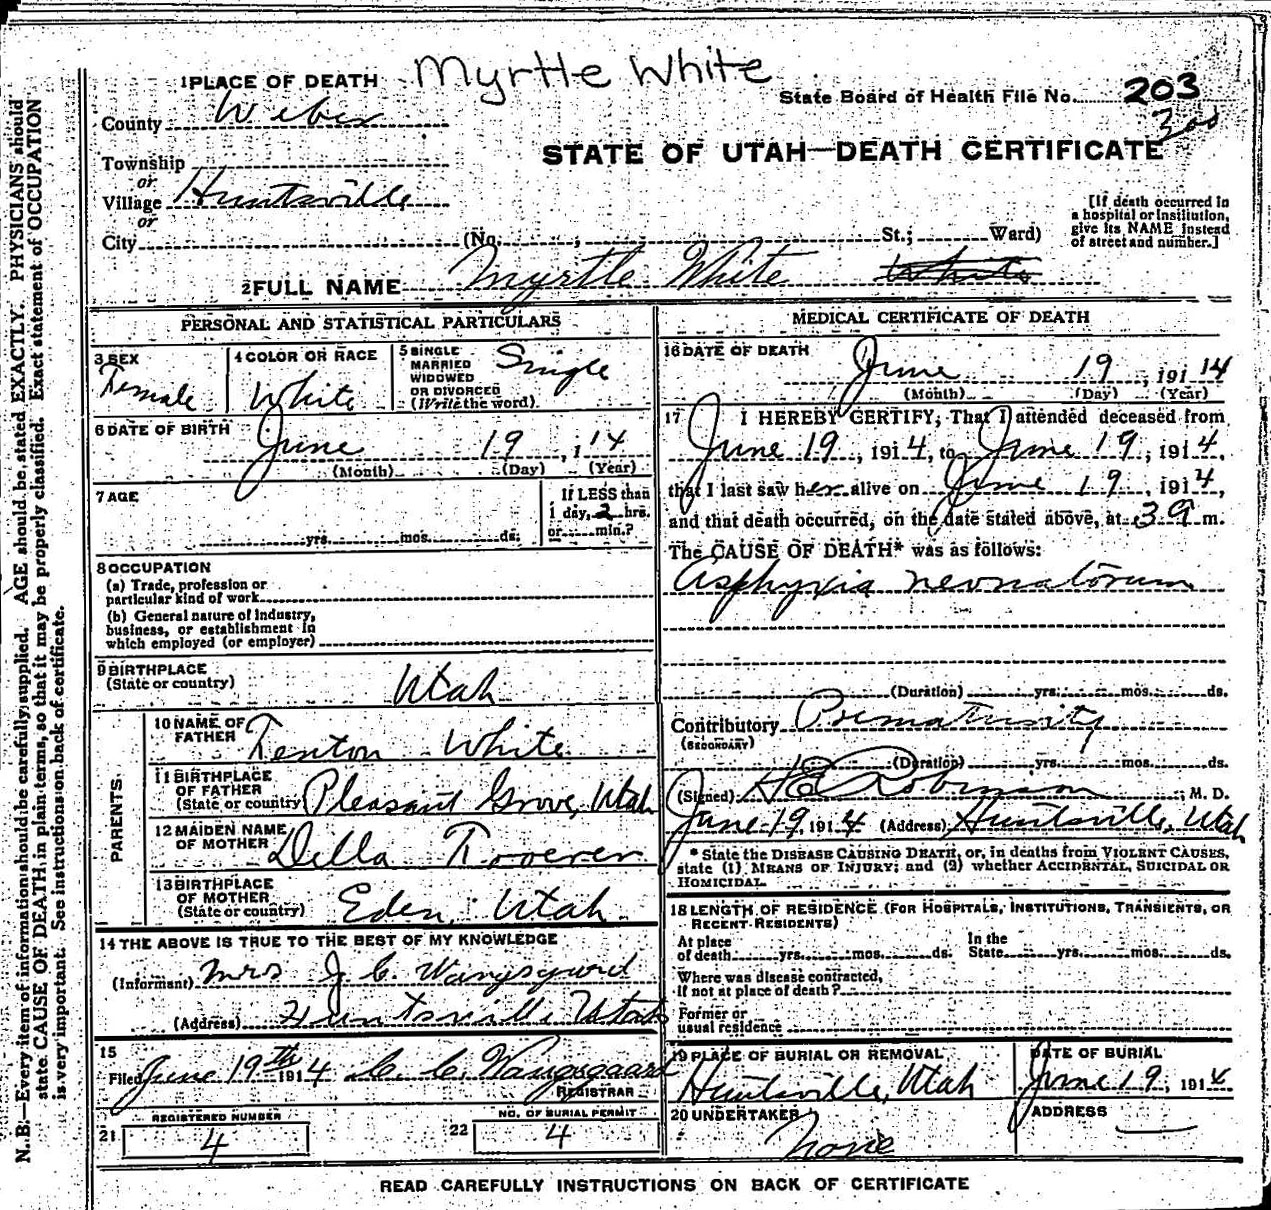 Myrtle White
1 PLACE OF DEATH
County Weber
State Board of Health File No. 203
STATE OF UTAH—DEATH CERTIFICATE
Township
or
Village Huntsville
or
City (No. , St.; Ward)
[If death occurred in
a hospital or institution,
give its NAME instead
of street and number.]
2 FULL NAME Myrtle White White
PERSONAL AND STATISTICAL PARTICULARS
3 SEX
Female
4 COLOR OR RACE
White
5 SINGLE
MARRIED
WIDOWED
OR DIVORCED
(Write the word)
Single
6 DATE OF BIRTH
June 19, 1 14
(Month) (Day) (Year)
7 AGE
yrs. mos. ds.
If LESS than
1 day, 2 hrs.
or min.?
8 OCCUPATION
(a) Trade, profession or
particular kind of work
(b) General nature of industry,
business, or establishment in
which employed (or employer)
9 BIRTHPLACE
(State or country)
Utah
PARENTS
10 NAME OF
FATHER
Tenton White
11 BIRTHPLACE
OF FATHER
(State or country
Pleasant Grove, Utah
12 MAIDEN NAME
OF MOTHER
Della
13 BIRTHPLACE
OF MOTHER
(State or country)
Eden, Utah
14 THE ABOVE IS TRUE TO THE BEST OF MY KNOWLEDGE
(Informant) Mrs J C.
(Address) Huntsville Utah
15
Filed June 19th 1914 C. C. Wangsgaard
REGISTRAR
REGISTERED NUMBER
21 4
NO. OF BURIAL PERMIT
22 4
MEDICAL CERTIFICATE OF DEATH
16 DATE OF DEATH
June 19, 191 14
(Month) (Day) (Year)
17 I HEREBY CERTIFY, That I attended deceased from
June 19, 1914, to June 19, 1914,
that I last saw her alive on June 19, 1914,
and that death occurred, on the date stated above, at 3 a m.
The CAUSE OF DEATH* was as follows:
Asphyxia neonatorum
(Duration) yrs. mos. ds.
Contributory Prematurity
(SECONDARY)
(Duration) yrs. mos. ds.
(Signed) H E Robinson, M. D.
June 19, 1914 (Address) Huntsville, Utah
* State the DISEASE CAUSING DEATH, or, in deaths from VIOLENT CAUSES,
state (1) MEANS OF INJURY; and (2) whether ACCIDENTAL, SUICIDAL OR
HOMICIDAL.
18 LENGTH OF RESIDENCE (FOR HOSPITALS, INSTITUTIONS, TRANSIENTS, OR
RECENT RESIDENTS)
At place
of death yrs. mos. ds.
In the
State yrs. mos. ds.
Where was disease contracted,
if not at place of death?
Former or
usual residence
19 PLACE OF BURIAL OR REMOVAL
Huntsville, Utah
DATE OF BURIAL
June 19, 1914
20 UNDERTAKER
None
ADDRESS
READ CAREFULLY INSTRUCTIONS ON BACK OF CERTIFICATE
N. B.—Every item of information should be carefully supplied. AGE should be stated EXACTLY. PHYSICIANS should
state CAUSE OF DEATH in plain terms, so that it may be properly classified. Exact statement of OCCUPATION
is very important. See instructions on back of certificate.